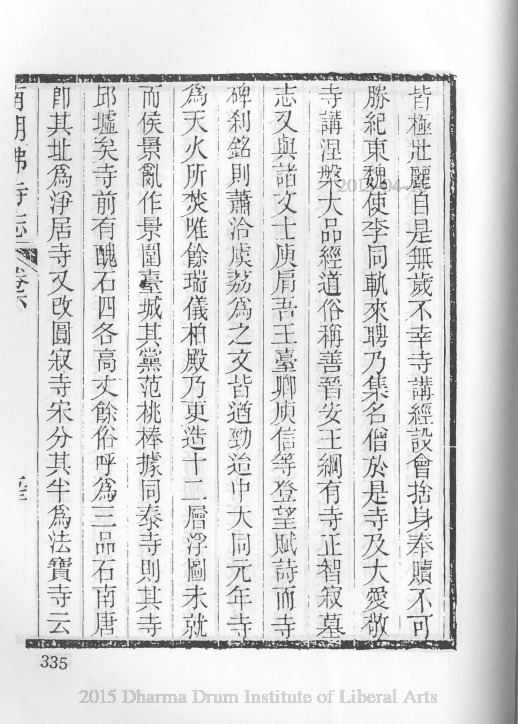 皆極壯麗自是無歲不幸寺講經設會捨身奉贖不可
勝紀東魏使李同軌來聘乃集名僧於是寺及大愛敬
寺講涅槃大品經道俗稱善晉安王綱有寺正智寂墓
志又與諸文士庾肩吾王臺卿庾信等登望賦詩而寺
碑刹銘則蕭洽虞荔為之文皆遒勁迨中大同元年寺
為天火所焚唯餘瑞儀柏殿乃更造十二層浮圖未就
而侯景亂作景圍臺城其黨范桃棒據同泰寺則其寺
邱墟矣寺前有醜石四各高丈餘俗呼為三品石南唐
卽其址為淨居寺又改圓寂寺宋分其半為法寶寺云
南朝佛寺志 卷
335
2015 Dharma Drum Institute of Liberal Arts